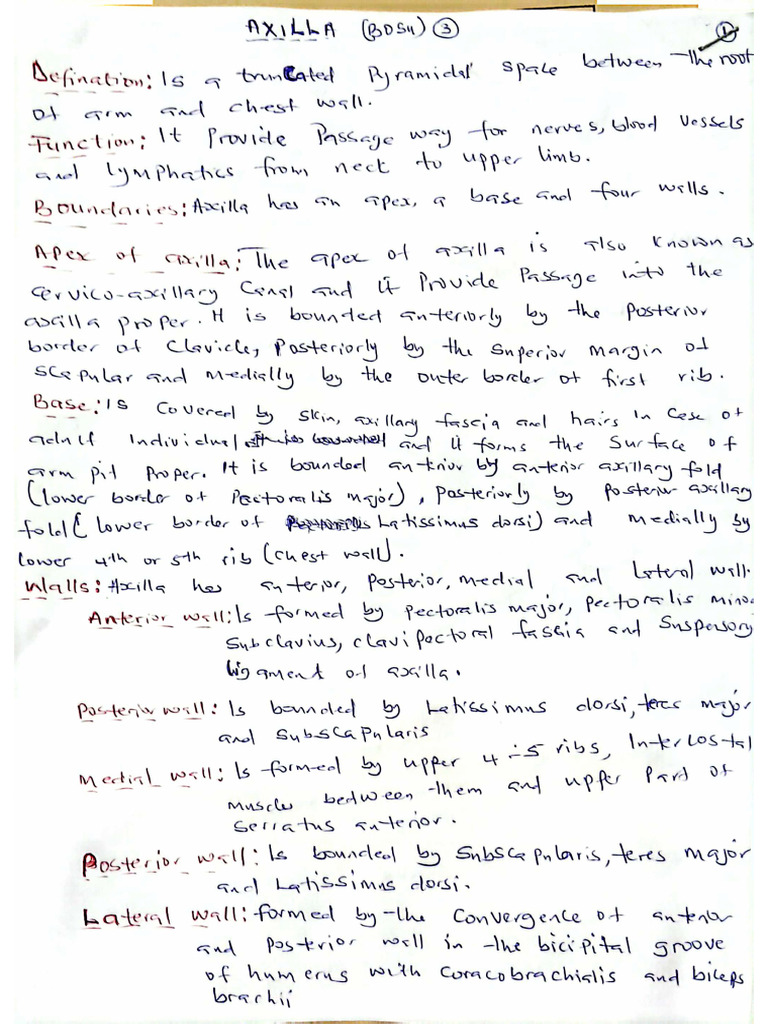 AXILLA (BDS4) 3
1
Defination: Is a truncated Pyramidal space between the root
of arm and chest wall.
Function: It Provide Passage way for nerves, blood vessels
and lymphatics from neck to upper limb.
Boundaries: Axilla has an apex, a base and four walls.
Apex of axilla: The apex of axilla is also known as
cervico-axillary Canal and it Provide Passage into the
axilla proper. It is bounded anteriorly by the Posterior
border of Clavicle, Posteriorly by the Superior Margin of
Scapular and Medially by the outer border of first rib.
Base: Is Covered by skin, axillary fascia and hairs In Case of
adult Individual and it forms the Surface of
arm pit Proper. It is bounded anterior by anterior axillary fold
(lower border of Pectoralis major), Posteriorly by Posterior axillary
fold (lower border of Latissimus dorsi) and medially by
lower 4th or 5th rib (chest wall).
Walls: Axilla has anterior, Posterior, medial and Lateral wall.
Anterior wall: Is formed by pectoralis major, pectoralis minor
Subclavius, clavipectoral fascia and Suspersory
ligament of axilla.
Posterior wall: Is bounded by Latissimus dorsi, teres major
and Subscapularis
Medial wall: Is formed by upper 4-5 ribs, Intercostal
muscles bedween them and upper Part of
Serratus anterior.
Posterior wall: Is bounded by Subscapularis, teres major
and Latissimus dorsi.
Lateral wall: formed by the Convergence of anterior
and Posterior wall in the bicipital groove
of humerus with Coracobrachialis and biceps
brachii